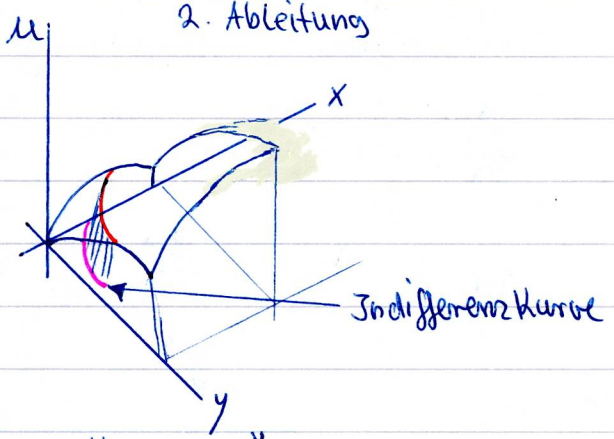 2. Ableitung
u
x
Indifferenzkurve
y